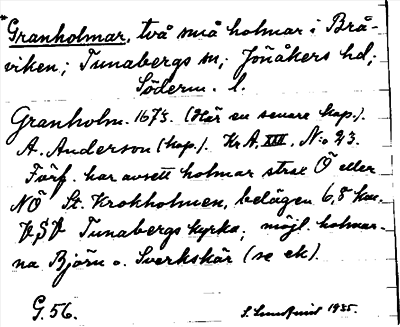 *Granholmar, två små holmar i Brå-
viken; Tunabergs sn; Jönåkers hd;
Söderm. l.
Granholm. 1673. (Här en senare kap.).
A. Anderson (kap.). Kr. A. XIII, N:o 23.
Förf. har avsett holmar strax Ö eller
NÖ St. Krokholmen, belägen 6,8 km.
VSV Tunabergs kyrka; möjl. holmar-
na Björn o. Sverkskär (se ek).
G. 56.
S. Lundqvist 1935.